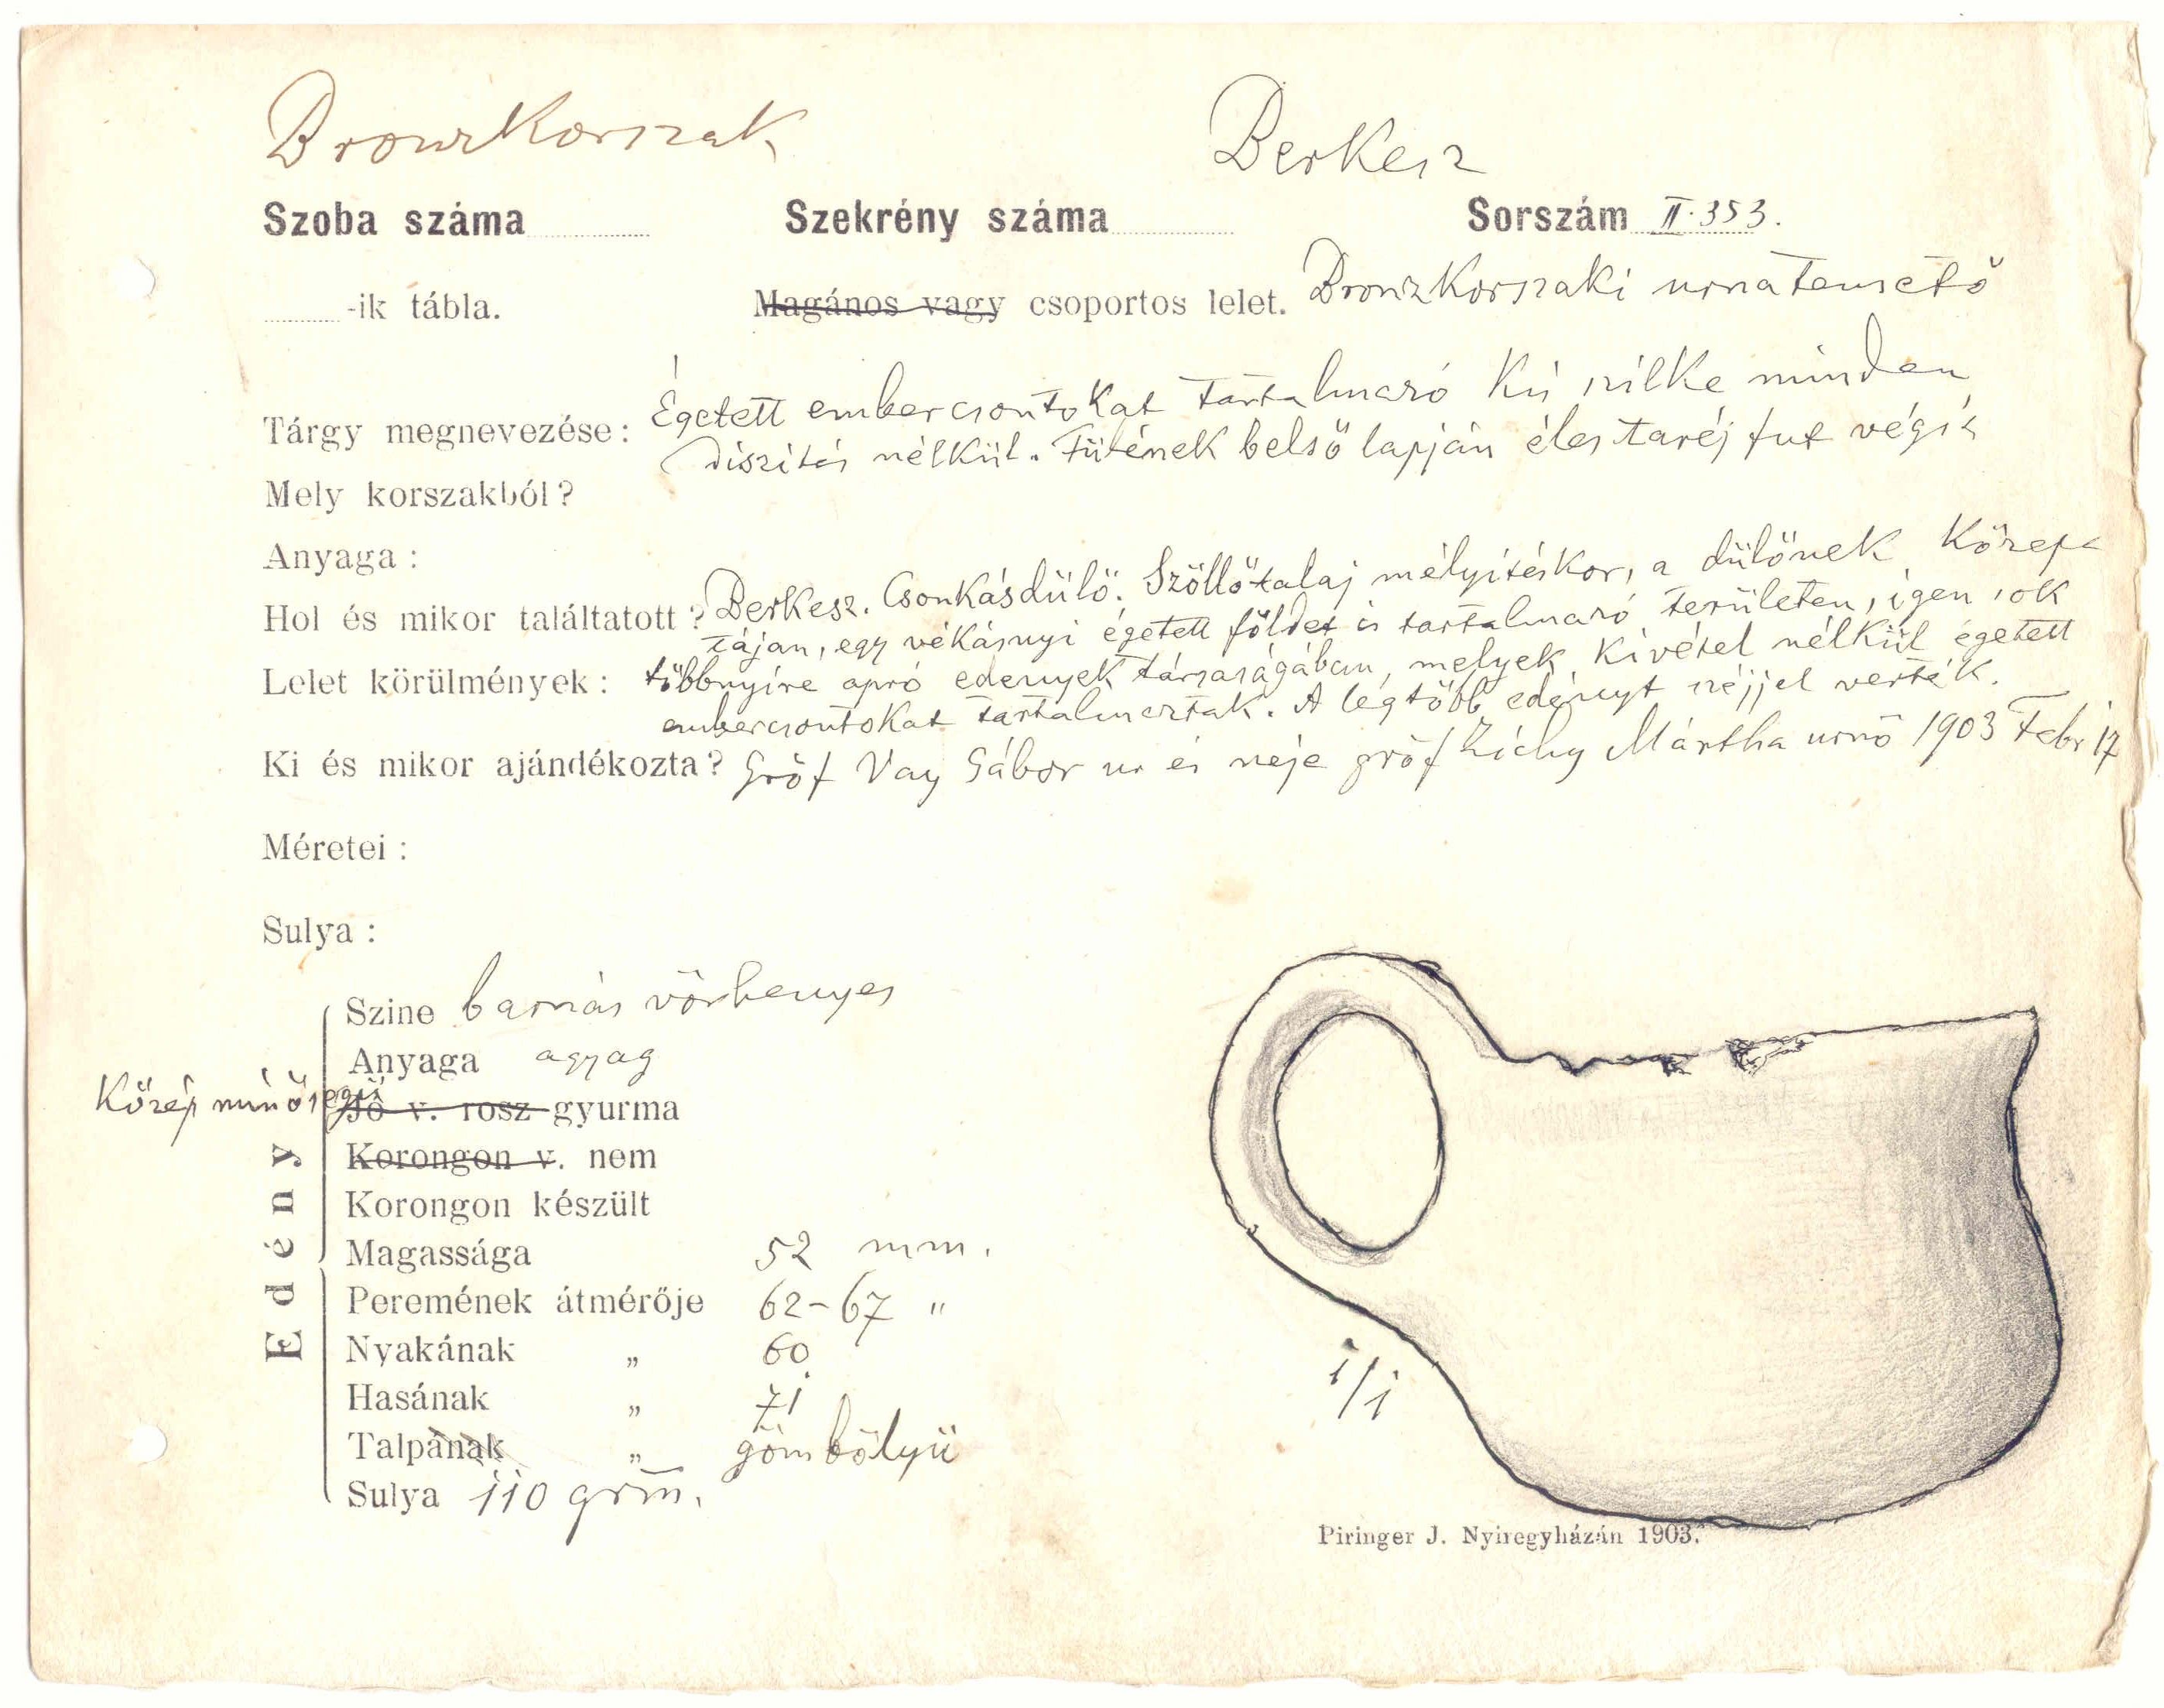 Bronzkorszak Berkesz
Szoba száma Szekrény száma Sorszám II. 353.
-ik tábla. Magános vagy csoportos lelet. Bronzkorszaki urnatemető
Tárgy megnevezése: Égetett embercsontokat tartalmazó kis szilke minden
diszités nélkül. Fülének belső lapján éles taréj fut végig
Mely korszakból?
Anyaga:
Hol és mikor találtatott? Berkesz. Csonkásdülő. Szöllőtalaj mélyitéskor, a dülőnek közepe
táján, egy vékásnyi égetett földet is tartalmazó területen, igen sok
Lelet körülmények: többnyire apró edények társaságában, melyek kivétel nélkül égetett
embercsontokat tartalmaztak. A legtöbb edényt széjjel verték.
Ki és mikor ajándékozta? Gróf Vay Gábor ur és neje gróf Zichy Mártha urnő 1903 Febr 17
Méretei:
Sulya:
Edény
Szine barnás vörhenyes
Anyaga agyag
Közép minőségü Jó v. rosz gyurma
Korongon v. nem
Korongon készült
Magassága 52 mm.
Peremének átmérője 62-67 "
Nyakának " 60
Hasának " 71
Talpának " gömbölyü
Sulya 110 grm.
1/1
Piringer J. Nyiregyházán 1903.